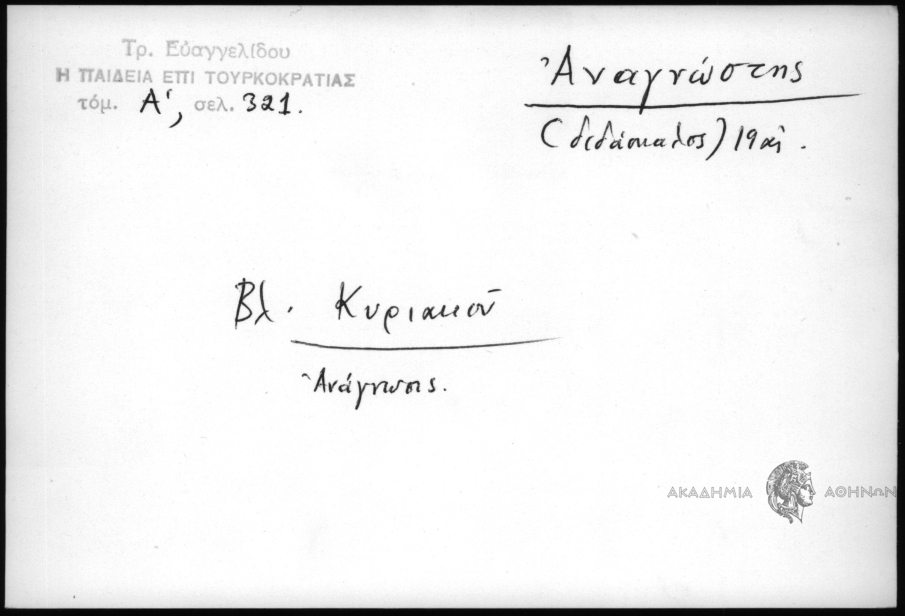 Τρ. Εὐαγγελίδου
Η ΠΑΙΔΕΙΑ ΕΠΙ ΤΟΥΡΚΟΚΡΑΤΙΑΣ
τόμ. Α', σελ. 321.
Ἀναγνώστης
(διδάσκαλος) 19 αἰ.
Βλ. Κυριακοῦ
Ἀνάγνωσις.
ΑΚΑΔΗΜΙΑ ΑΘΗΝΩΝ